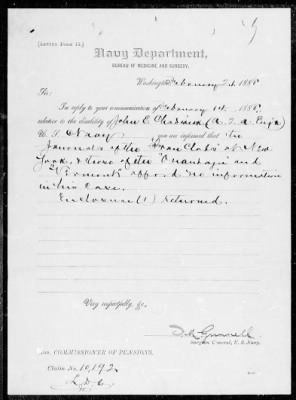 [LETTER FORM 15.]
Navy Department,
BUREAU OF MEDICINE AND SURGERY,
Washington, February 2d, 1888
Sir:
In reply to your communication of February 1st, 1888,
relative to the disability of John C. (A. 3. A. Eng'r)
U. S. Navy, you are informed that the
Journals of the "Iron Clads" at New
York, & those of the and
"Vermont" afford no information
in his case.
Enclosure (1) returned.
Very respectfully, &c.,
Surgeon General, U. S. Navy.
COMMISSIONER OF PENSIONS.
Claim No. 10,192.